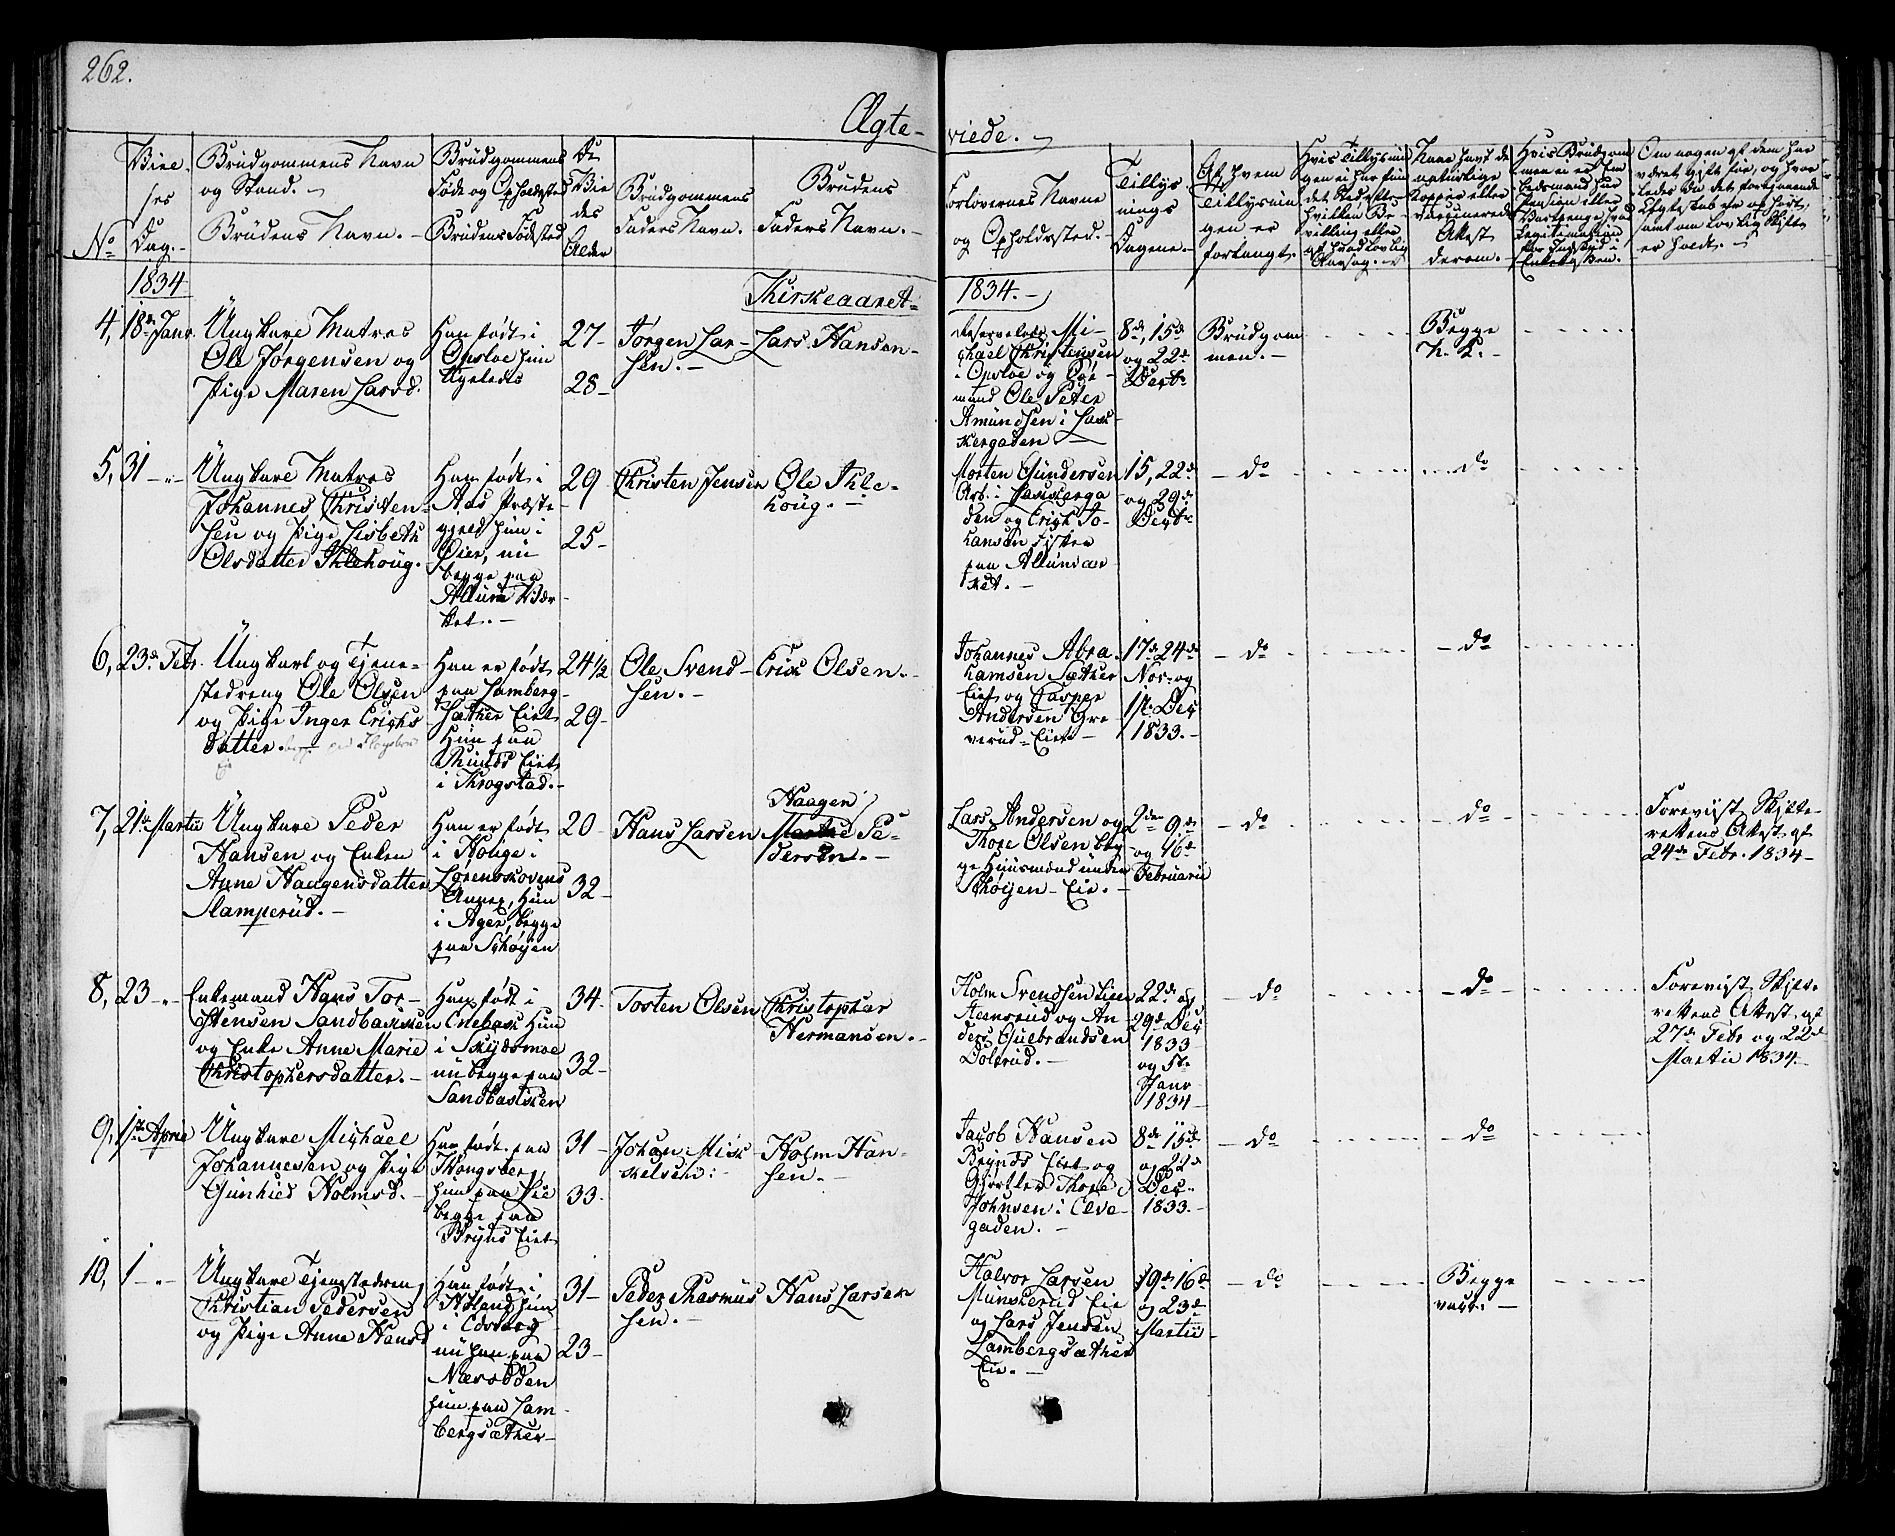 262.
Ægte-
viede.
No
Viel-
ses
Dag.
Brudgommens Navn
og Stand.
Brudens Navn.
Brudgommens
Føde og Opholdsted
Brudens Fødsted
De
Vie
des
Alder
Brudgommens
Faders Navn.
Brudens
Faders Navn.
Forlovernes Navne
og Opholdssted.
Tillys
nings
Dagene.
Af hvem
Tillysnin
gen er
forlangt.
Have havt de
naturlige
Kopper eller
vaccinerede
Attest
derom.
Om nogen af dem har
været gift før, og hvor
ledes da det foregaaende
Ægteskab er ophørt,
samt om lovlig Skifte
er holdt.
1834
Kirkeaaret
1834.
4, 18de Janr.
Ungkarl Matros
Ole Jørgensen og
Pige Maren Larsd.
Han født i
Opsloe hun
27
28
Jørgen Lar-
sen.
Lars Hansen
Michael Christensen
i Opsloe og
Ole Peter
Amundsen i Lak-
kergaden
8de, 15de
og 22de
Decbr
Brudgom
men.
Begge
n. K.
5, 31
Ungkarl Matros
Johannes Christen-
sen og Pige Lisbeth
Olsdatter Ihlehoug.
Han født i
Aas Præste-
gjeld hun i
Øier, nu
begge paa
Allunvær-
ket.
29
25
Christen Jensen
Ole Ihle-
houg.
Morten Gundersen
Arb. i Lakkerga
den og Erich Jo-
hansen Fisker
paa Allunvær
ket.
15, 22de
og 29de
Decbr
do
do
6, 23de Febr.
Ungkarl og Tjene-
stedreng Ole Olsen
og Pige Inger Erichs
datter.
Han er født
paa Lamberg-
sæther Eiet
Hun paa
Eiet
i Krogstad.
24 1/2
29
Ole Svend-
sen.
Erik Olsen.
Johannes Abra
hamsen Sæther
Eiet og Casper
Andersen Gre
verud Eiet
17de 24de
Nov. og
1ste Dec
1833.
do
do
7, 21de Martii
Ungkarl Peder
Hansen og Enken
Anne Haagensdatter
Slamperud.
Han er født
i Houge i
Lørenskovens
Annex, Hun
i Ager, begge
paa Schøyen
20
32
Hans Larsen
Haagen
Pe-
dersen.
Lars Andersen og
Thore Olsen beg
ge Huusmænd under
Schøyen Eie.
2den 9de
og 16de
Februarii
do
do
Foreviist Skifte-
rettens Attest af
24de Febr. 1834
8, 23
Enkemand Hans Tor-
stensen Sandbakken
og Enke Anne Marie
Christophersdatter.
Han født i
Enebak Hun
i Skydsmoe
nu begge paa
Sandbakken
34
32
Tosten Olsen
Christopher
Hermansen.
Holm Svendsen
og An-
ders Gulbrandsen
Dølerud.
22de og
29de Dec
1833
og 5te
Janr
1834
do
do
Foreviist Skifte-
rettens Attest af
27de Febr og 22de
Martii 1834
9, 1ste April
Ungkarl Michael
Johannesen og Pige
Gunhild Holmsd.
Han født paa
Kongsberg,
hun paa
begge paa
Bryns Eiet
31
33
Johan Mik
kelsen.
Holm Han-
sen.
Jacob Hansen
Bryns Eiet og
Gjørtler Thore
Johnsen i Elve-
gaden.
8de 15de
og 22de
Dec.
1833.
do
do
10, 1
Ungkarl Tjenestedreng
Christian Pedersen
og Pige Anne Hansd
Han født i
Høland hun
i Edsberg
nu han paa
Næsodden
hun paa Lam-
bergsæther
31
23
Peder Rasmus
sen.
Hans Larsen
Halvor Larsen
Munkerud Eie
og Lars Jensen
Lambergsæther
Eie.
9de 16de
og 23de
Martii
do
Begge
vacc.